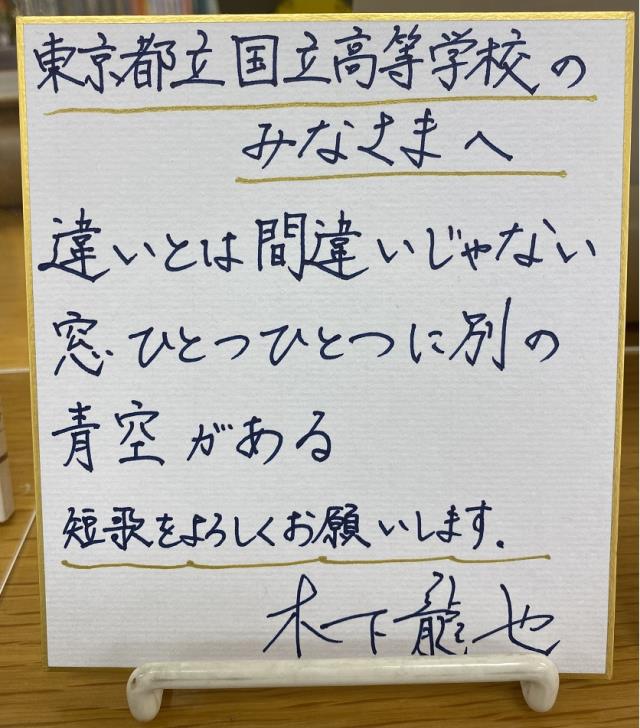 東京都立国立高等学校の
みなさまへ
違いとは間違いじゃない
窓ひとつひとつに別の
青空がある
短歌をよろしくお願いします。
木下龍也